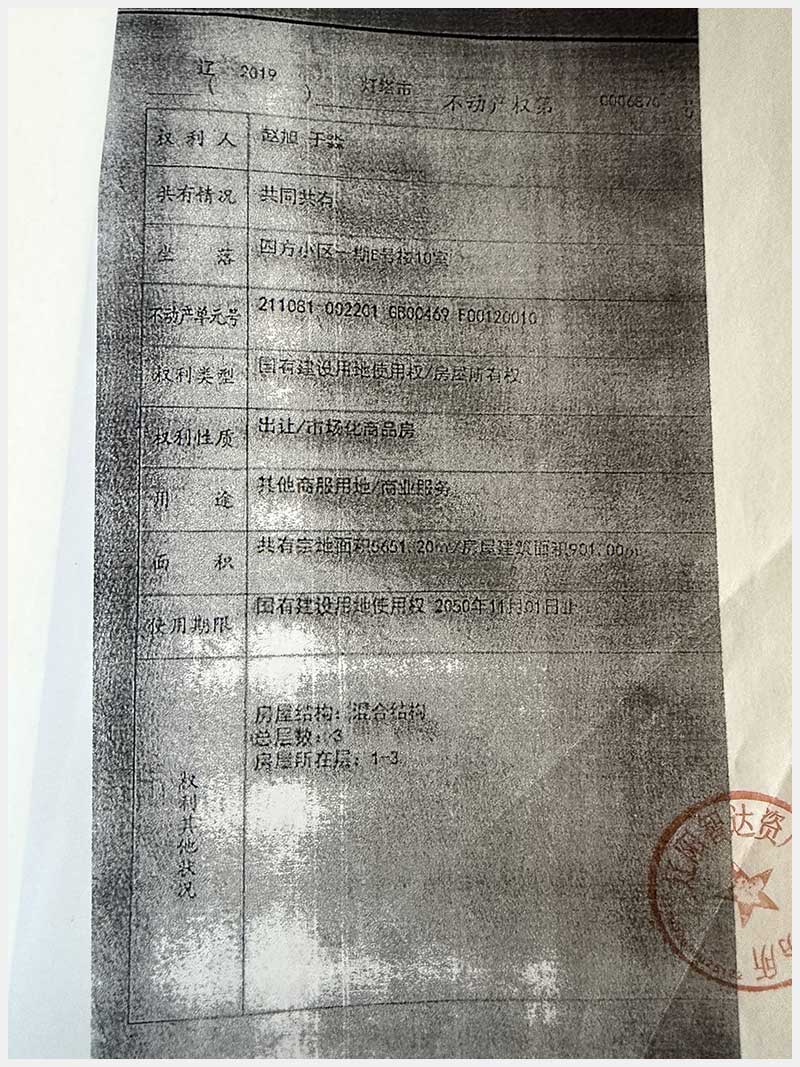 辽 ( 2019 ) 灯塔市 不动产权第 0006870 号
权利人 赵旭 于淼
共有情况 共同共有
坐落 四方小区一期E号楼10室
不动产单元号 211081 002201 GB00469 F00120010
权利类型 国有建设用地使用权/房屋所有权
权利性质 出让/市场化商品房
用途 其他商服用地/商业服务
面积 共有宗地面积5651.20㎡/房屋建筑面积901.00㎡
使用期限 国有建设用地使用权 2050年11月01日止
权利其他状况
房屋结构：混合结构
总层数：3
房屋所在层：1-3
达资
所